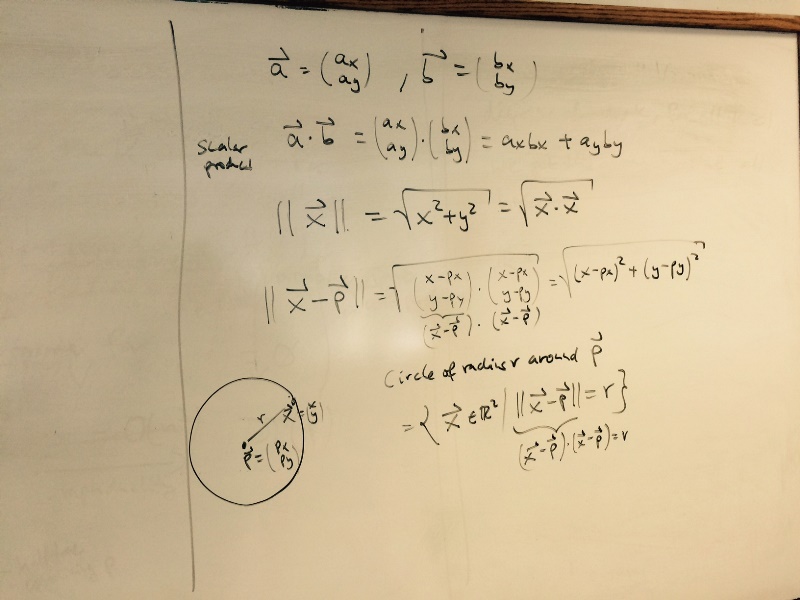 a⃗ = (ax ay) , b⃗ = (bx by)
Scalar product
a⃗ · b⃗ = (ax ay) · (bx by) = axbx + ayby
||x⃗|| = √(x²+y²) = √(x⃗ · x⃗)
||x⃗-p⃗|| = √((x-px y-py) · (x-px y-py)) = √((x-px)² + (y-py)²)
(x⃗-p⃗) · (x⃗-p⃗)
Circle of radius r around p⃗
= { x⃗ ∈ ℝ² | ||x⃗-p⃗|| = r }
(x⃗-p⃗)·(x⃗-p⃗) = r
r
x⃗ = (x y)
p⃗ = (px py)